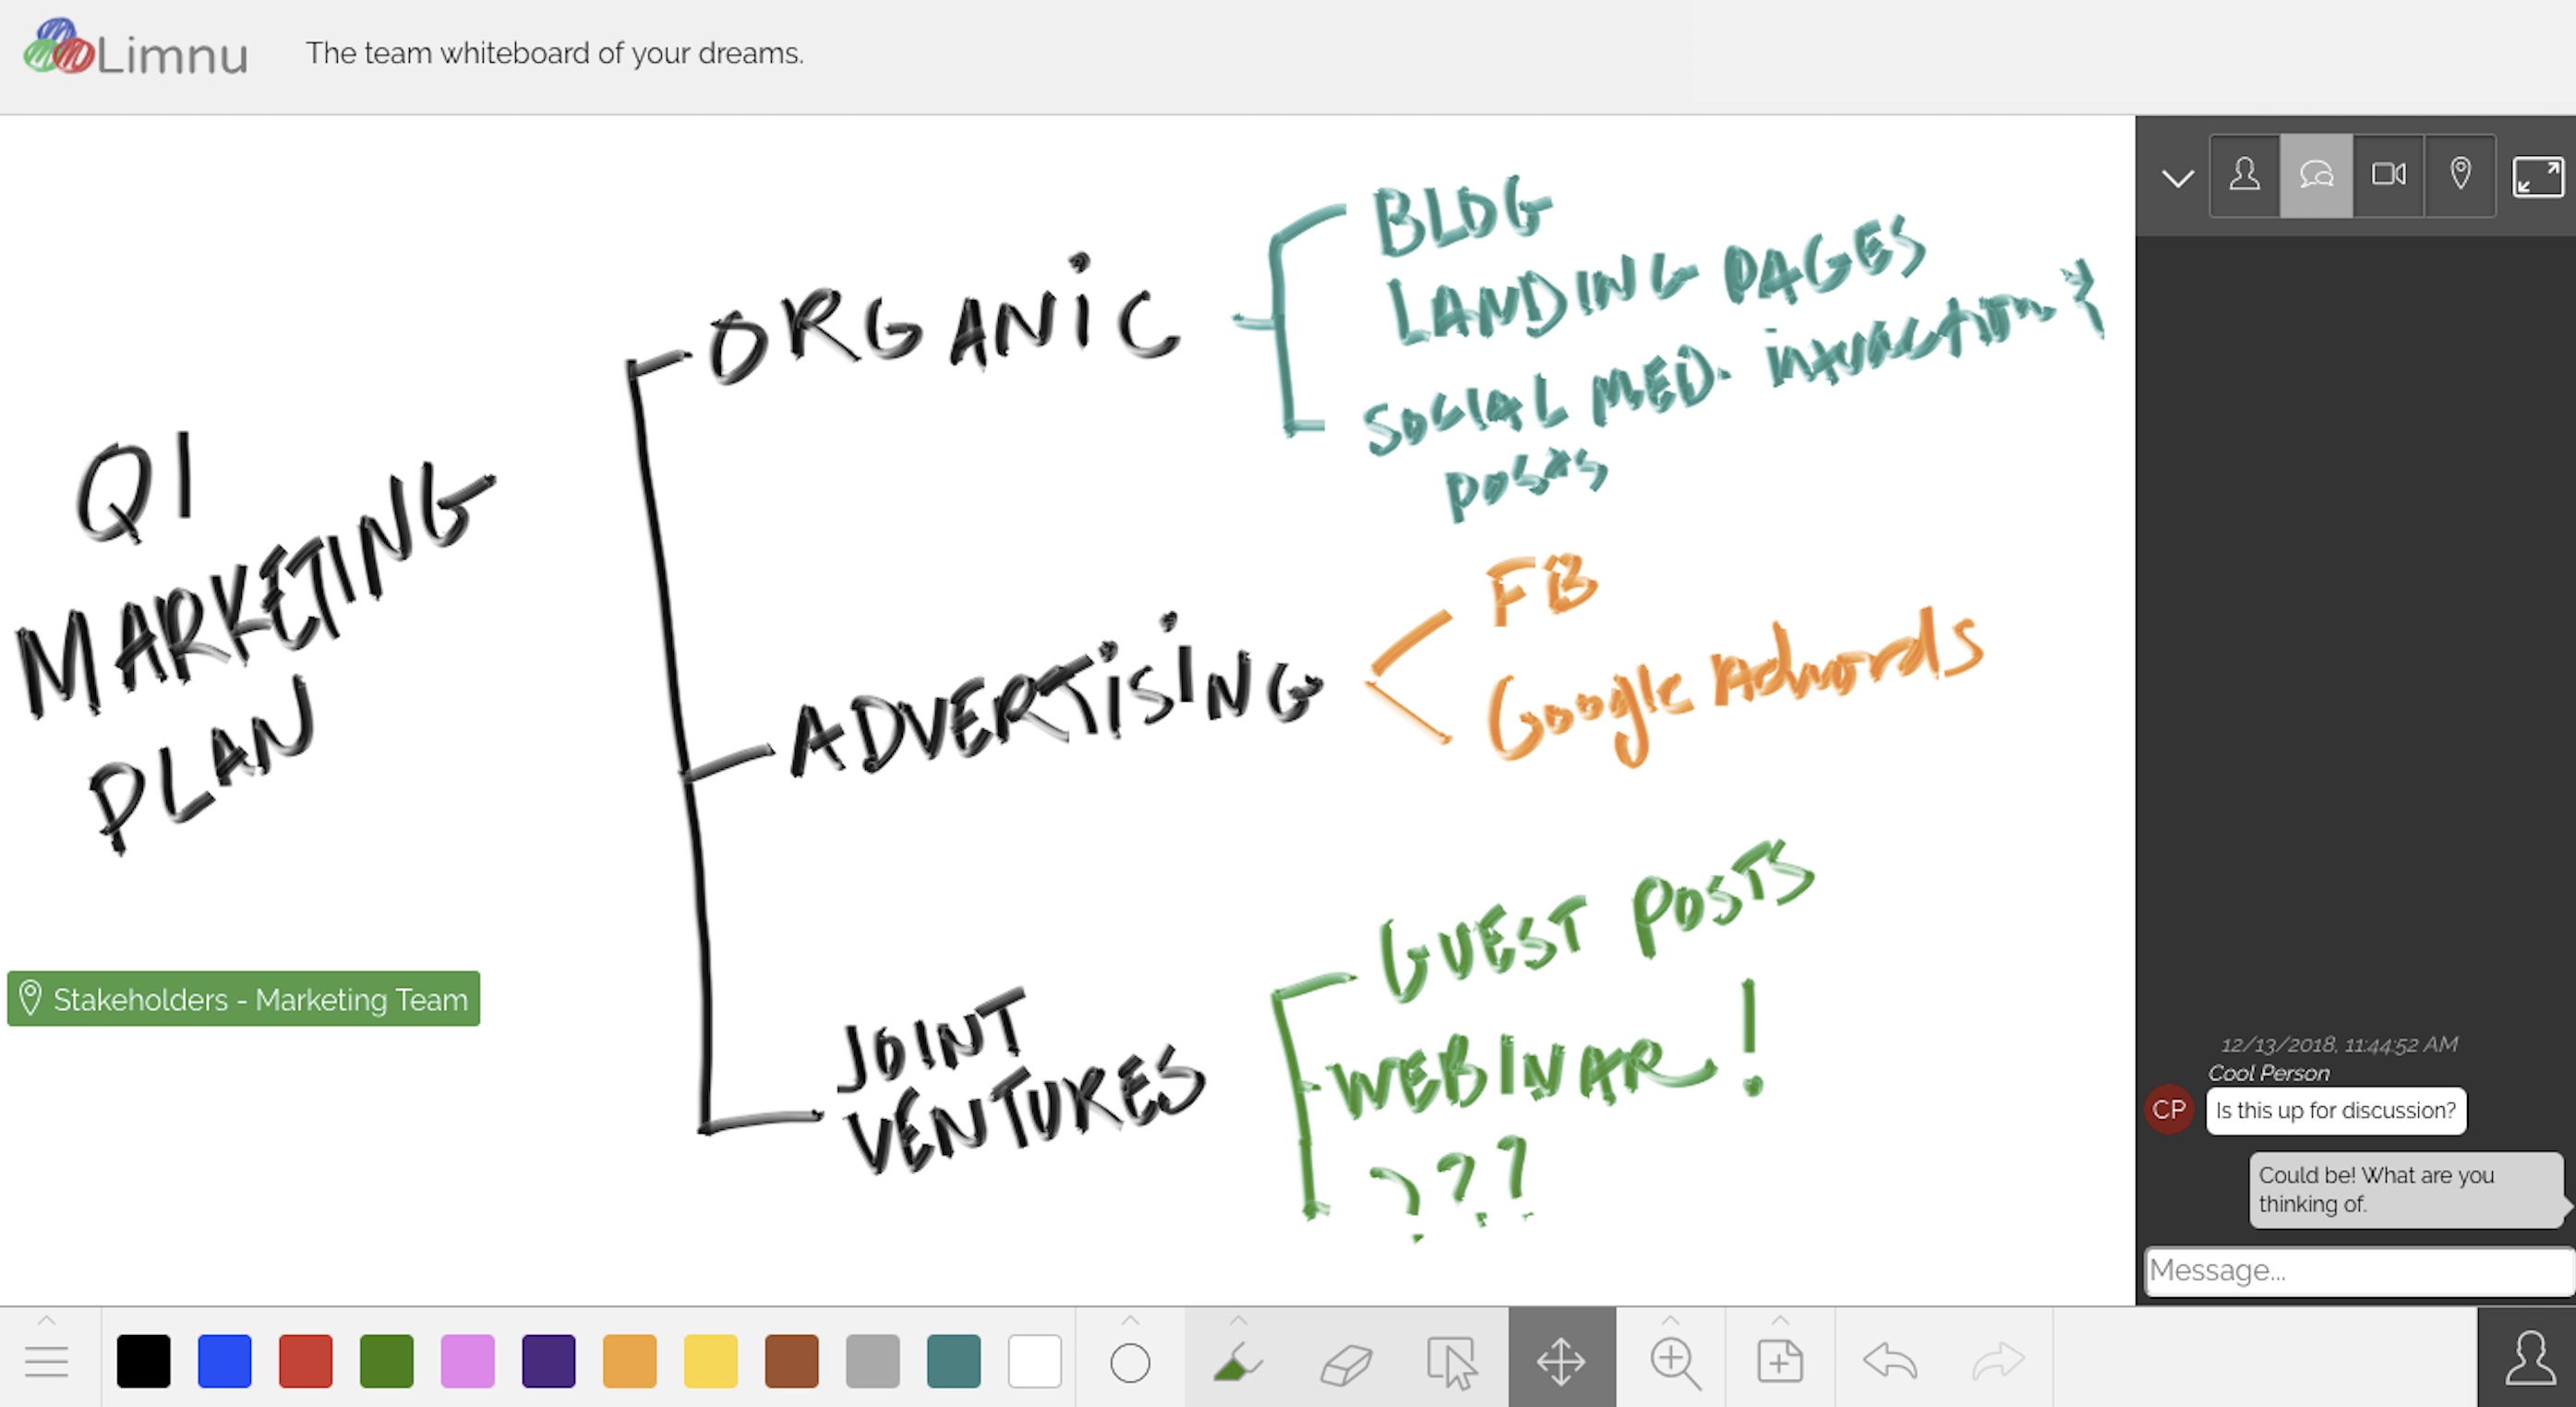 Limnu
The team whiteboard of your dreams.
Q1
MARKETING
PLAN
ORGANiC
BLOG
LANDING PAGES
SOCIAL MED. interaction &
posts
ADVERTiSiNG
FB
Google Adwords
JOINT
VENTURES
GUEST POSTS
WEBINAR!
???
Stakeholders - Marketing Team
12/13/2018, 11:44:52 AM
Cool Person
CP
Is this up for discussion?
Could be! What are you
thinking of.
Message...